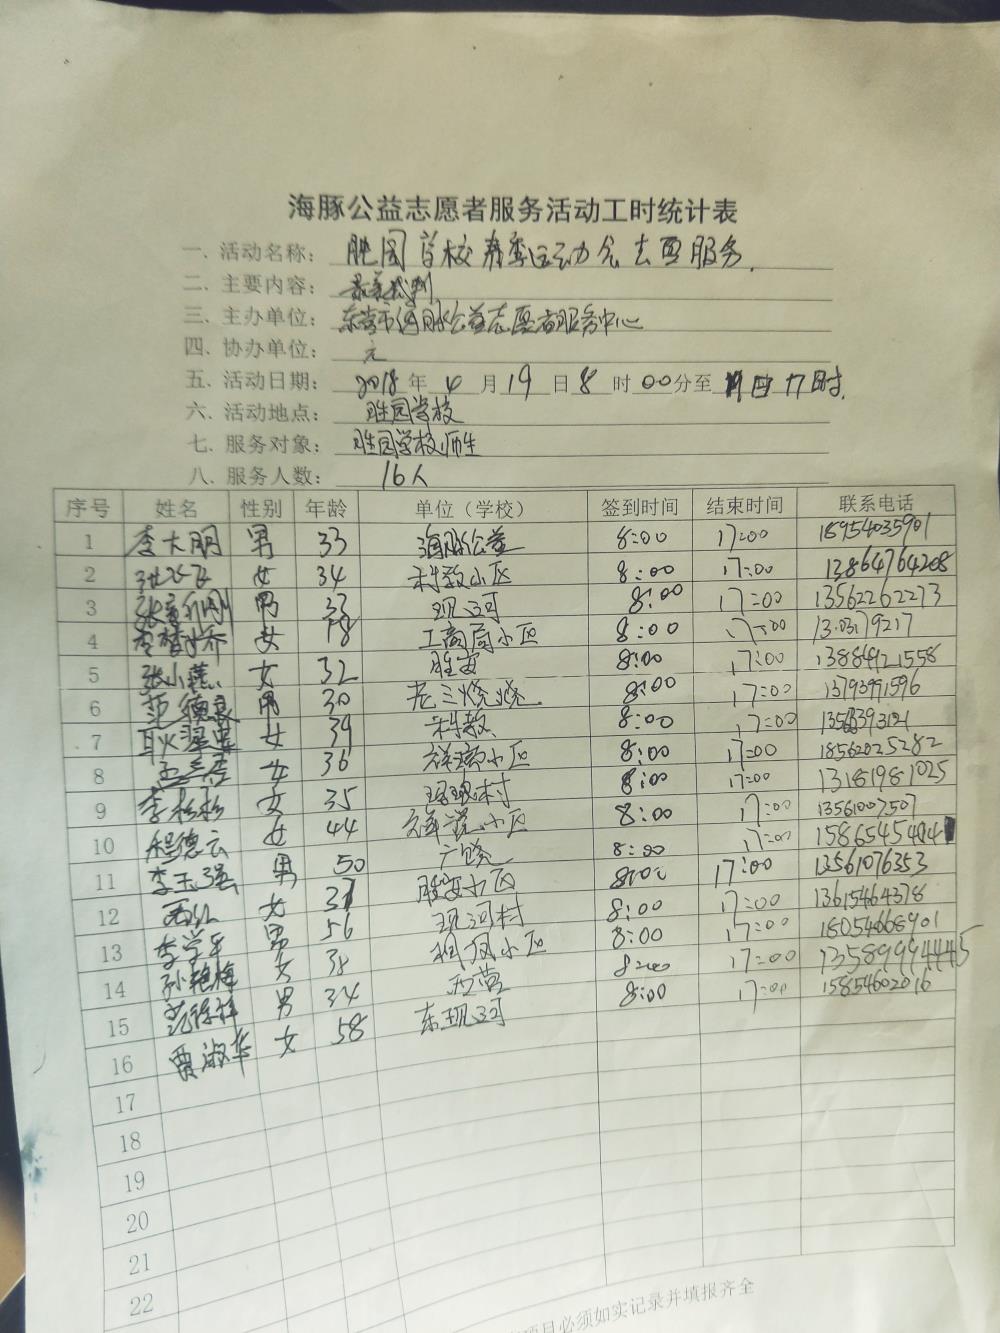 海豚公益志愿者服务活动工时统计表
一. 活动名称: 胜园学校春季运动会志愿服务.
二. 主要内容: 裁判
三. 主办单位: 东营市海豚公益志愿者服务中心
四. 协办单位: 无
五. 活动日期: 2018年4月19日8时00分至19日17时.
六. 活动地点: 胜园学校
七. 服务对象: 胜园学校师生
八. 服务人数: 16人
序号 姓名 性别 年龄 单位(学校) 签到时间 结束时间 联系电话
1 李大朋 男 33 海豚公益 8:00 17:00 18954035901
2 女 34 科教小区 8:00 17:00 13864764208
3 男 33 现河 8:00 17:00 13562262273
4 女 18 工商局小区 8:00 17:00
5 张小燕 女 32 胜安 8:00 17:00
6 范德良 男 30 老三烧烤 8:00 17:00
7 女 39 科教 8:00 17:00
8 孟兰香 女 36 祥瑞小区 8:00 17:00 18562025282
9 李松松 女 35 村 8:00 17:00 13181981025
10 程德云 女 44 小区 8:00 17:00 13561002507
11 李玉强 男 50 广饶 8:00 17:00
12 女 37 胜安小区 8:00 17:00 13561076353
13 李学军 男 56 现河村 8:00 17:00 13615464378
14 孙艳梅 女 38 小区 8:00 17:00 18054668901
15 范德祥 男 34 西营 8:00 17:00
16 贾淑华 女 58 东现河 15854602016
17
18
19
20
21
22
项目必须如实记录并填报齐全